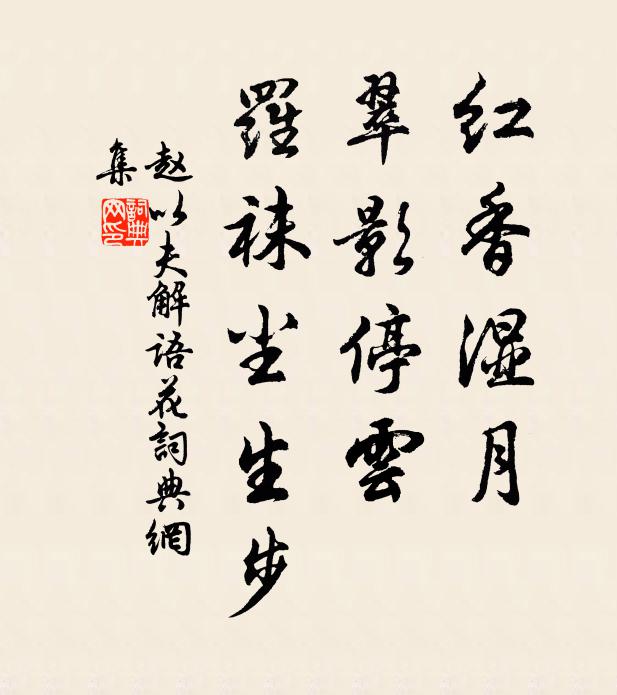 红香湿月
翠影停雲
羅袜尘生步
赵以夫解语花詞典網
集
詞典
网印